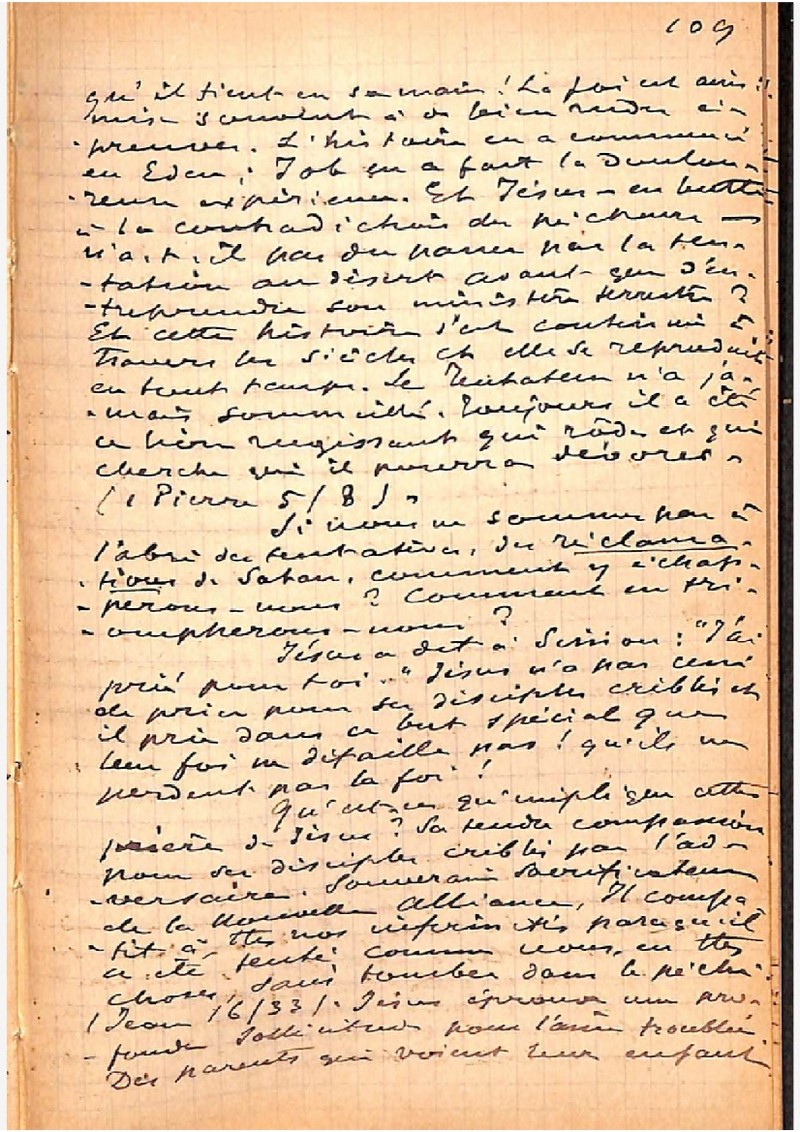 109
qu'il tient en sa main! La foi est ainsi
mise souvent à de bien rudes é-
preuves. L'histoire en a commencé
en Eden; Job en a fait la doulou-
reuse expérience. Et Jésus - en butte
à la contradiction des pécheurs -
n'a-t-il pas dû passer par la ten-
tation au désert avant que d'en-
treprendre son ministère terrestre?
Et cette histoire s'est continuée à
travers les siècles et elle se reproduit
en tout temps. Le Tentateur n'a ja-
mais sommeillé. Toujours il a été
ce lion rugissant qui rôde et qui
cherche qui il pourra dévorer.
(1 Pierre 5/8).
Si nous ne sommes pas à
l'abri des tentatives, des réclama-
tions de Satan, comment y échap-
perons-nous? Comment en tri-
ompherons-nous?
Jésus a dit à Simon: "J'ai
prié pour toi.." Jésus n'a pas cessé
de prier pour ses disciples criblés et
il prie dans ce but spécial que
leur foi ne défaille pas! qu'ils ne
perdent pas la foi!
Qu'est-ce qu'implique cette
prière de Jésus? Sa tendre compassion
pour ses disciples criblés par l'ad-
versaire. Souverain Sacrificateur
de la Nouvelle Alliance, Il compa-
tit à ttes nos infirmités parce qu'il
a été tenté comme nous, en ttes
choses, sans tomber dans le péché
(Jean 16/33). Jésus éprouve une pro-
fonde sollicitude pour l'âme troublée
Des parents qui voient leur enfant